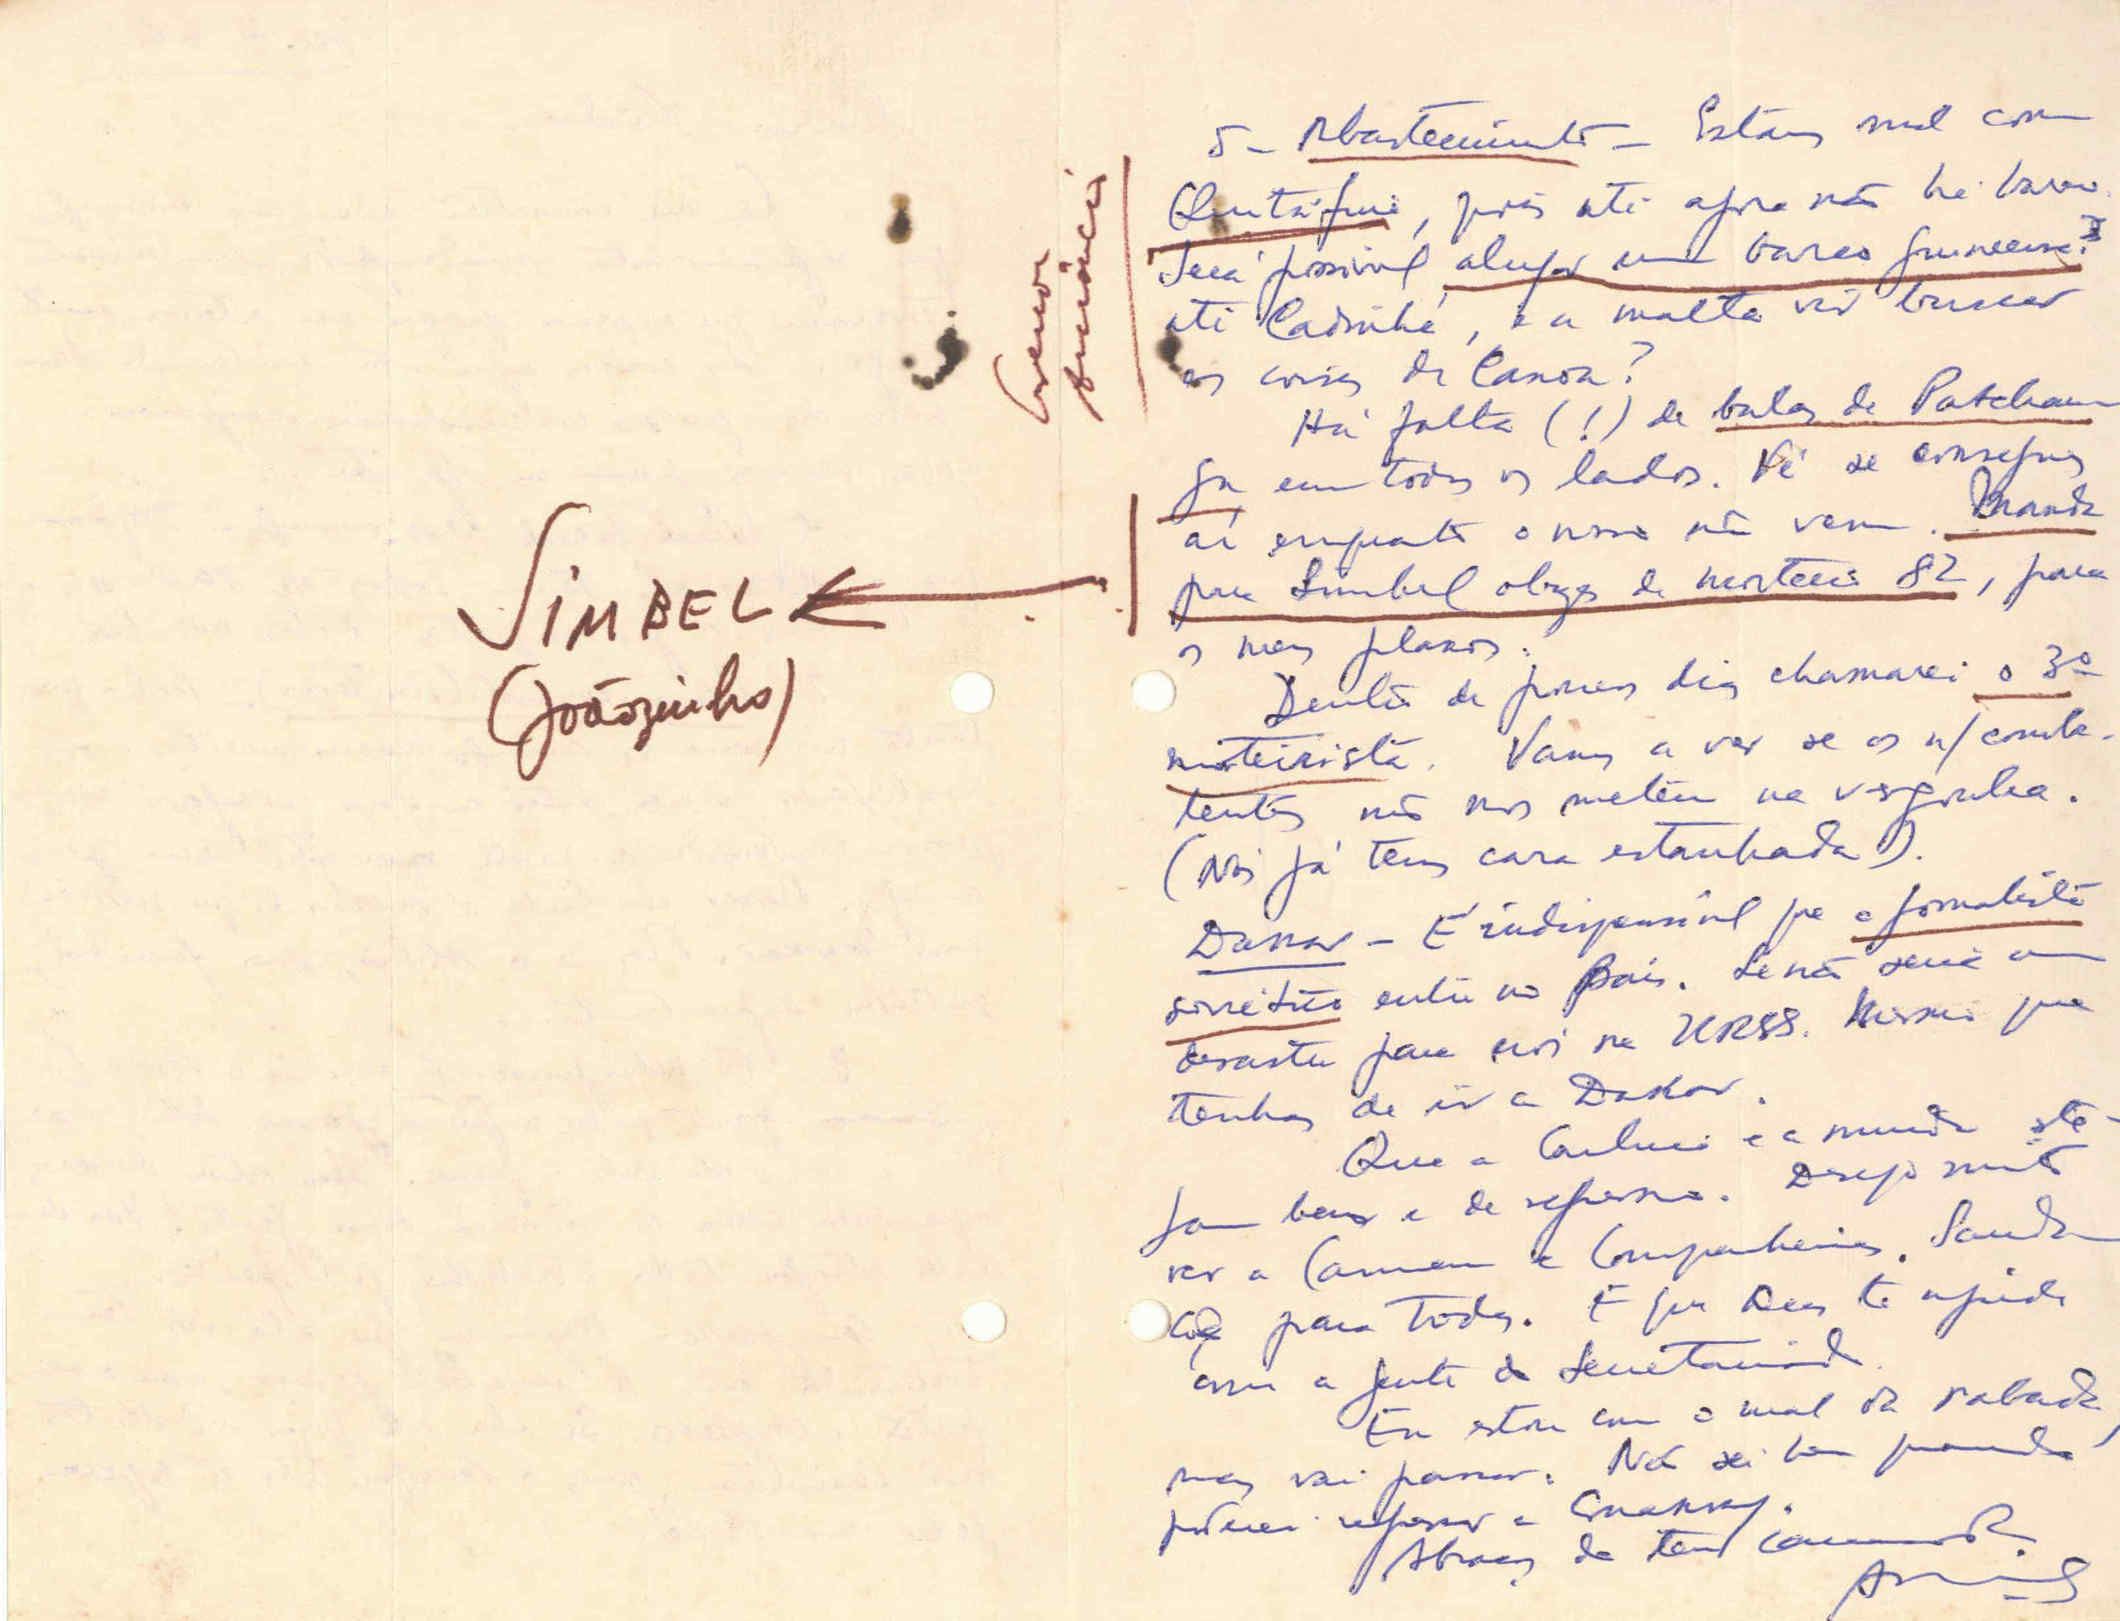 5 – Abastecimento – Estamos mal com
Quitáfine, pois até agora não há barco.
Será possível alugar um barco guineense
até Cadinhé, e a malta vir buscar
as coisas de Canoa?
Há falta (!) de balas de Patchan-
ga em todos os lados. Vê se consegues
aí enquanto o nosso não vem. Manda
para Simbel obuzes de morteiro 82, para
os meus planos.
Dentro de poucos dias chamarei o 3º
morteirista. Vamos a ver se os n/ comba-
tentes não nos metem na vergonha.
(Nós já temos cara estanhada).
Dakar – É indispensável que o jornalista
soviético entre no País. Senão será um
desastre para nós na URSS. Mesmo que
tenhas de ir a Dakar.
Que a e a miúda este-
jam bem e de regresso. Desejo muito
ver a Carmen e Companheiros. Sauda-
ções para todos. E que Deus te ajude
com a gente do Secretariado.
Eu estou com o mal da rabada,
mas vai passar. Não sei bem quando
poderei regressar a Conakry.
Abraços do teu camarada
SIMBEL
(Joãozinho)